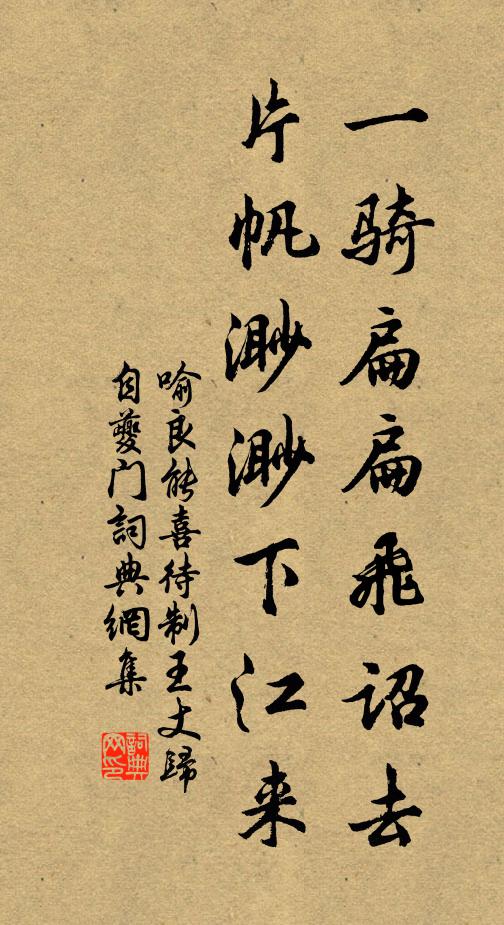 一骑扁扁飛诏去
片帆渺渺下江来
喻良能喜待制王丈歸
自夔门詞典網集
詞典
网印